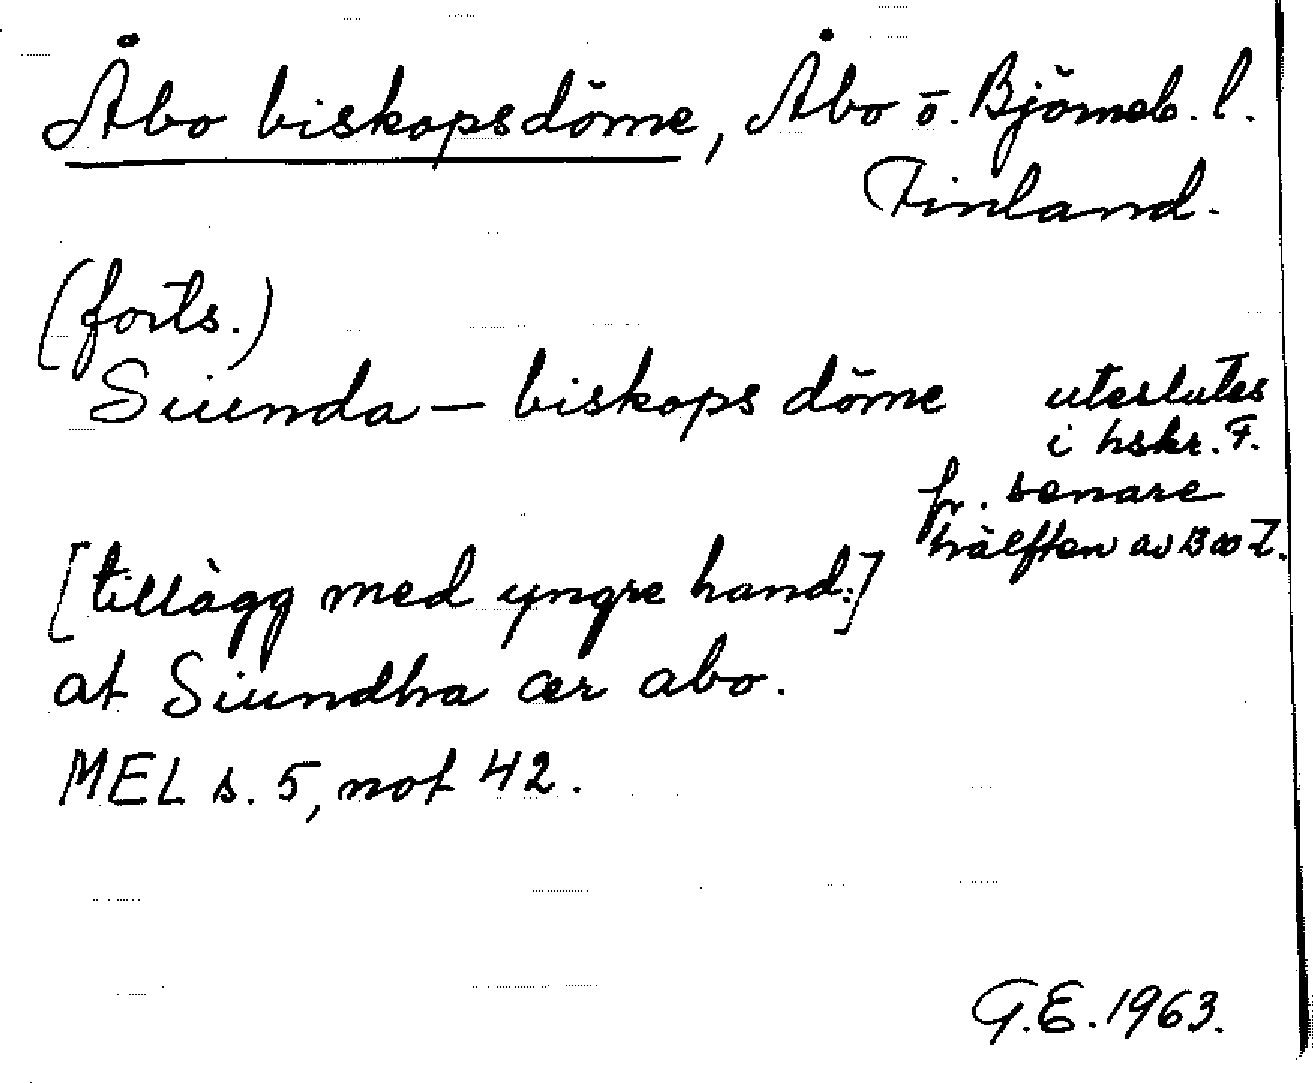 Åbo biskopsdöme, Åbo o. Björneb. l.
Finland.
(forts.)
Siunda – biskops döme
uteslutes
i hskr. F.
fr. senare
hälften av
[tillägg med yngre hand:]
at Siundha ær abo.
MEL s. 5, not 42.
G.E. 1963.